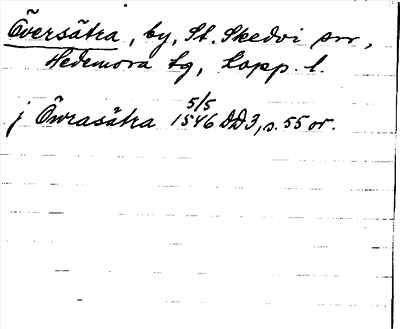 Översätra, by, St. Skedvi snr,
Hedemora tg, Kopp. l.
5/5
j Öwrasätra 1546 DD3, s. 55 or.